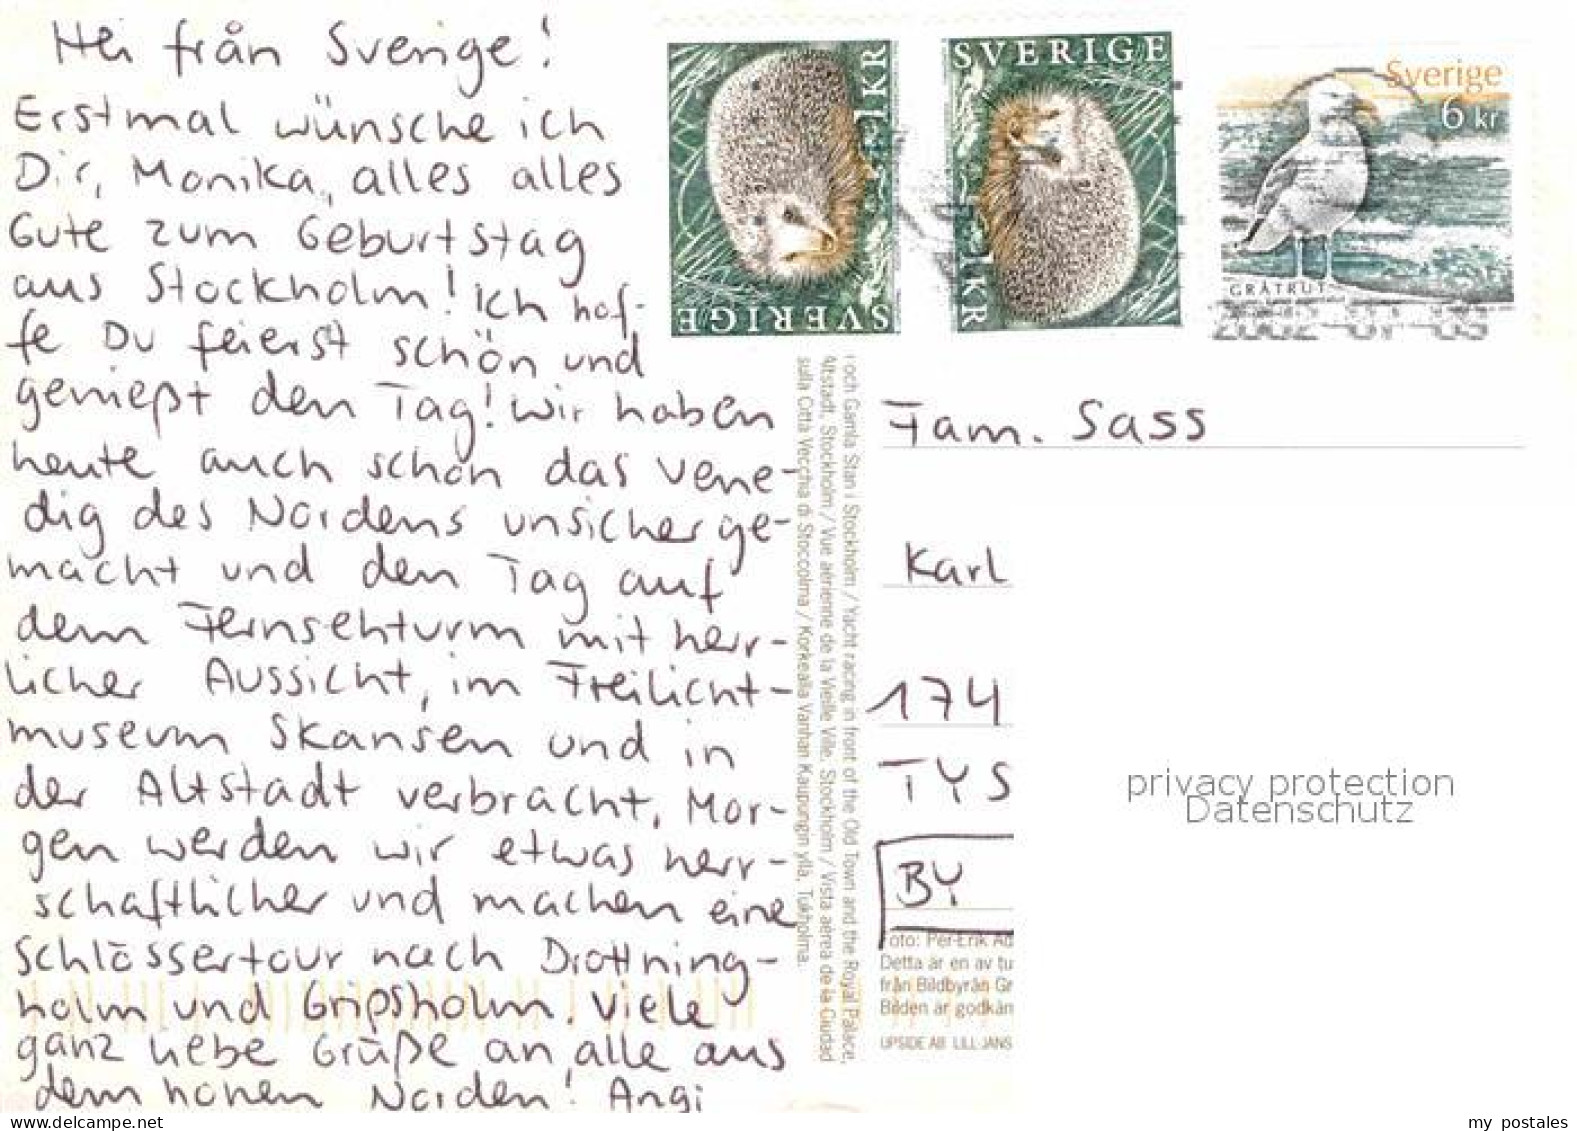 Hei från Sverige!
Erstmal wünsche ich
Dir, Monika, alles alles
Gute zum Geburtstag
aus Stockholm! Ich hof-
fe Du feierst schön und
genießt den Tag! Wir haben
heute auch schon das Vene-
dig des Nordens unsicher ge-
macht und den Tag auf
dem Fernsehturm mit herr-
licher Aussicht, im Freilicht-
museum Skansen und in
der Altstadt verbracht. Mor-
gen werden wir etwas herr-
schaftlicher und machen eine
Schlössertour nach Drottning-
holm und Gripsholm. Viele
ganz liebe Grüße an alle aus
dem hohen Norden! Angi
SVERIGE 1KR
SVERIGE 1KR
Sverige
6 kr
GRÅTRUT
i och Gamla Stan i Stockholm / Yacht racing in front of the Old Town and the Royal Palace,
Altstadt, Stockholm / Vue aérienne de la Vieille Ville, Stockholm / Vista aérea de la Ciudad
sulla Città Vecchia di Stoccolma / Korkealla Vanhan Kaupungin yllä, Tukholma.
Fam. Sass
Karl
174
TYS
BY
Foto: Per-Erik Ad
Detta är en av tu
från Bildbyrån Gr
Bilden är godkän
UPSIDE AB LILL-JANS
privacy protection
Datenschutz
my postales